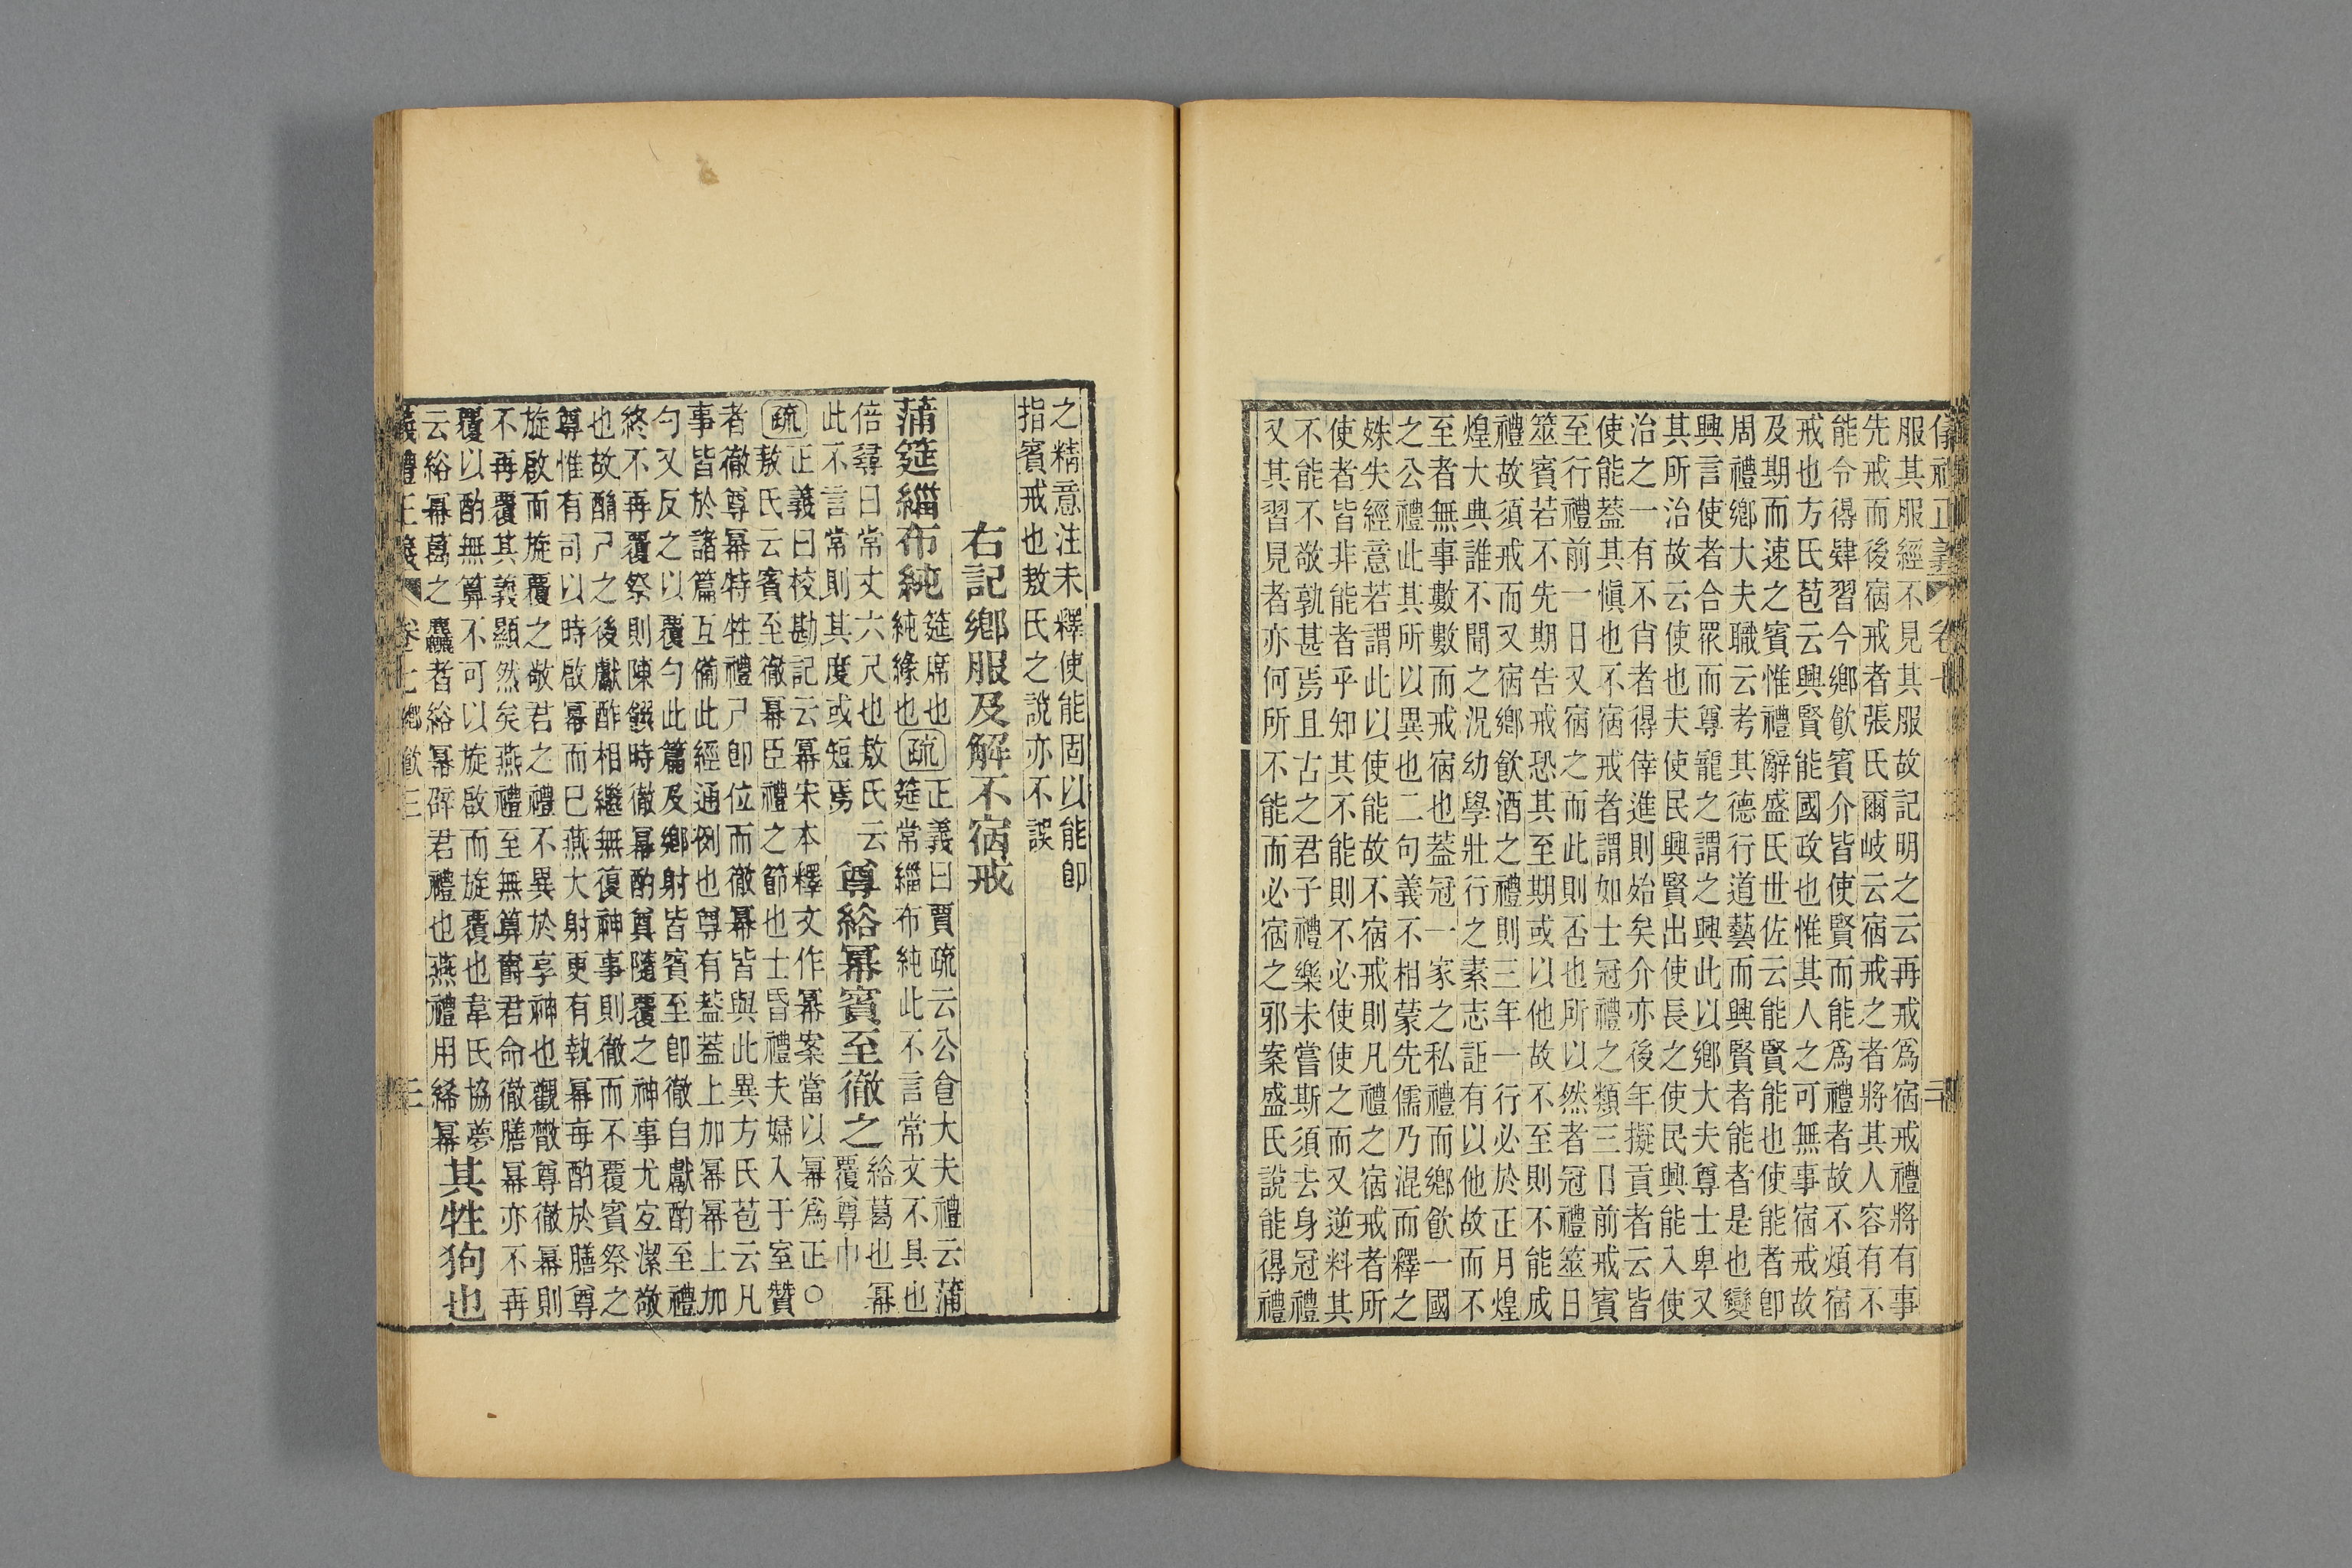 儀禮正義 卷七 二
服其服經不見其服故記明之云再戒爲宿戒禮將有事
先戒而後宿戒者張氏爾岐云宿戒之者將其人容有不
能令得肄習今鄉飮賓介皆使賢而能爲禮者故不煩宿
戒也方氏苞云興賢能國政也惟其人之可無事宿戒故
及期而速之賓惟禮辭盛氏世佐云能賢能也使能者卽
周禮鄉大夫職云考其德行道藝而興賢者能者是也變
興言使者合眾而尊寵之謂之興此以鄉大夫尊士卑又
其所治故云使也夫使民興賢出使長之使民興能入使
治之一有不肖者得倖進則始矣介亦後年擬貢者云皆
使能葢其愼也不宿戒者謂如士冠禮之類三日前戒賓
至行禮前一日又宿之而此則否也所以然者冠禮筮日
筮賓若不先期告戒恐其至期或以他故不至則不能成
禮故須戒而又宿鄉飮酒之禮則三年一行必於正月煌
煌大典誰不聞之況幼學壯行之素志詎有以他故而不
至者無事數數而戒宿也葢冠一家之私禮而鄉飮一國
之公禮此其所以異也二句義不相蒙先儒乃混而釋之
姝失經意若謂此以使能故不宿戒則凡禮之宿戒者所
使者皆非能者乎知其不能則不必使使之而又逆料其
不能不敬孰甚焉且古之君子禮樂未嘗斯須去身冠禮
又其習見者亦何所不能而必宿之邪案盛氏說能得禮
之精意注未釋使能固以能卽
指賓戒也敖氏之說亦不誤
右記鄉服及解不宿戒
蒲筵緇布純
筵席也
純緣也
疏
正義曰賈疏云公食大夫禮云蒲
筵常緇布純此不言常文不具也
倍尋曰常丈六尺也敖氏云
此不言常則其度或短焉
尊綌冪賓至徹之
綌葛也冪
覆尊巾
疏
正義曰校勘記云冪宋本釋文作冪案當以冪爲正○
敖氏云賓至徹冪臣禮之節也士昏禮夫婦入于室贊
者徹尊冪特牲禮尸卽位而徹冪皆與此異方氏苞云凡
事皆於諸篇互備此經通例也尊有葢葢上加冪冪上加
勺又反之以覆勺此篇及鄉射皆賓至卽徹自獻酌至禮
終不再覆祭則陳饌時徹冪酌奠隨覆之神事尤宜潔敬
也故酳尸之後獻酢相繼無復神事則徹而不覆賓祭之
尊惟有司以時啟冪而已燕大射更有執冪每酌於膳尊
旋啟而旋覆之敬君之禮不異於享神也觀徹尊徹冪則
不再覆其義顯然矣燕禮至無算爵君命徹膳冪亦不再
覆以酌無算不可以旋啟而旋覆也韋氏協夢
云綌冪葛之麤者綌冪辟君禮也燕禮用綌冪
其牲狗也
儀禮正義 卷七 鄉飮三 三